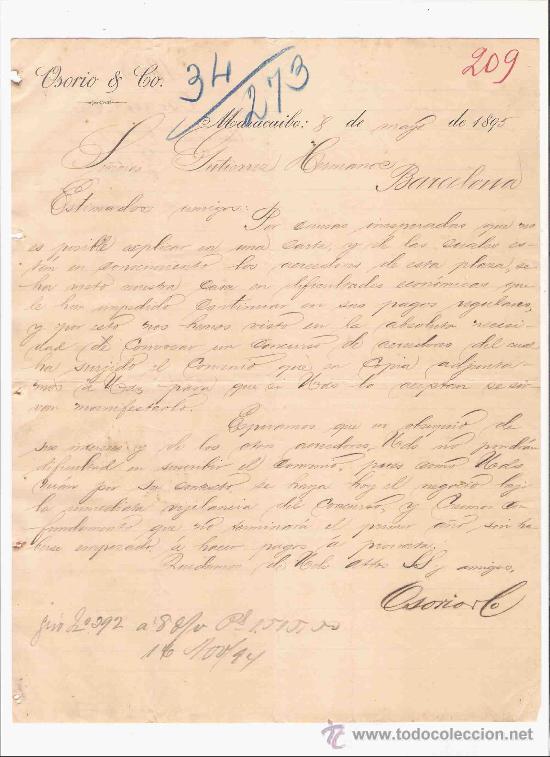 Osorio & Co.
34/273
209
Maracaibo: 8 de mayo de 1895
Señores Gutierrez Hermanos
Barcelona
Estimados amigos:
Por causas inesperadas que no
es posible esplicar en una carta, y de las cuales es-
tán en conocimiento los acreedores de esta plaza, se
ha visto nuestra casa en dificultades económicas que
le han impedido continuar en sus pagos regulares,
y por esto nos hemos visto en la absoluta necesi-
dad de convocar un concurso de acreedores del cual
ha surjido el Convenio que en copia adjunta-
mos á Uds para que si Uds lo aceptan se sir-
van manifestarlo.
Esperamos que en obsequio de
sus intereses y de los otros acreedores, Uds no pondrán
dificultad en suscribir el Convenio, pues como Uds
verán por su contesto se haya hoy el negocio bajo
la inmediata vigilancia del Concurso, y creemos con
fundamento que no terminará el primer año sin ha-
berse empezado á hacer pagos á prorrata.
Quedamos de Uds attos SS y amigos,
Osorio & Co
giro No 292 a 8 d/v Ps 1.515.50
16 Nov/94
www.todocoleccion.net